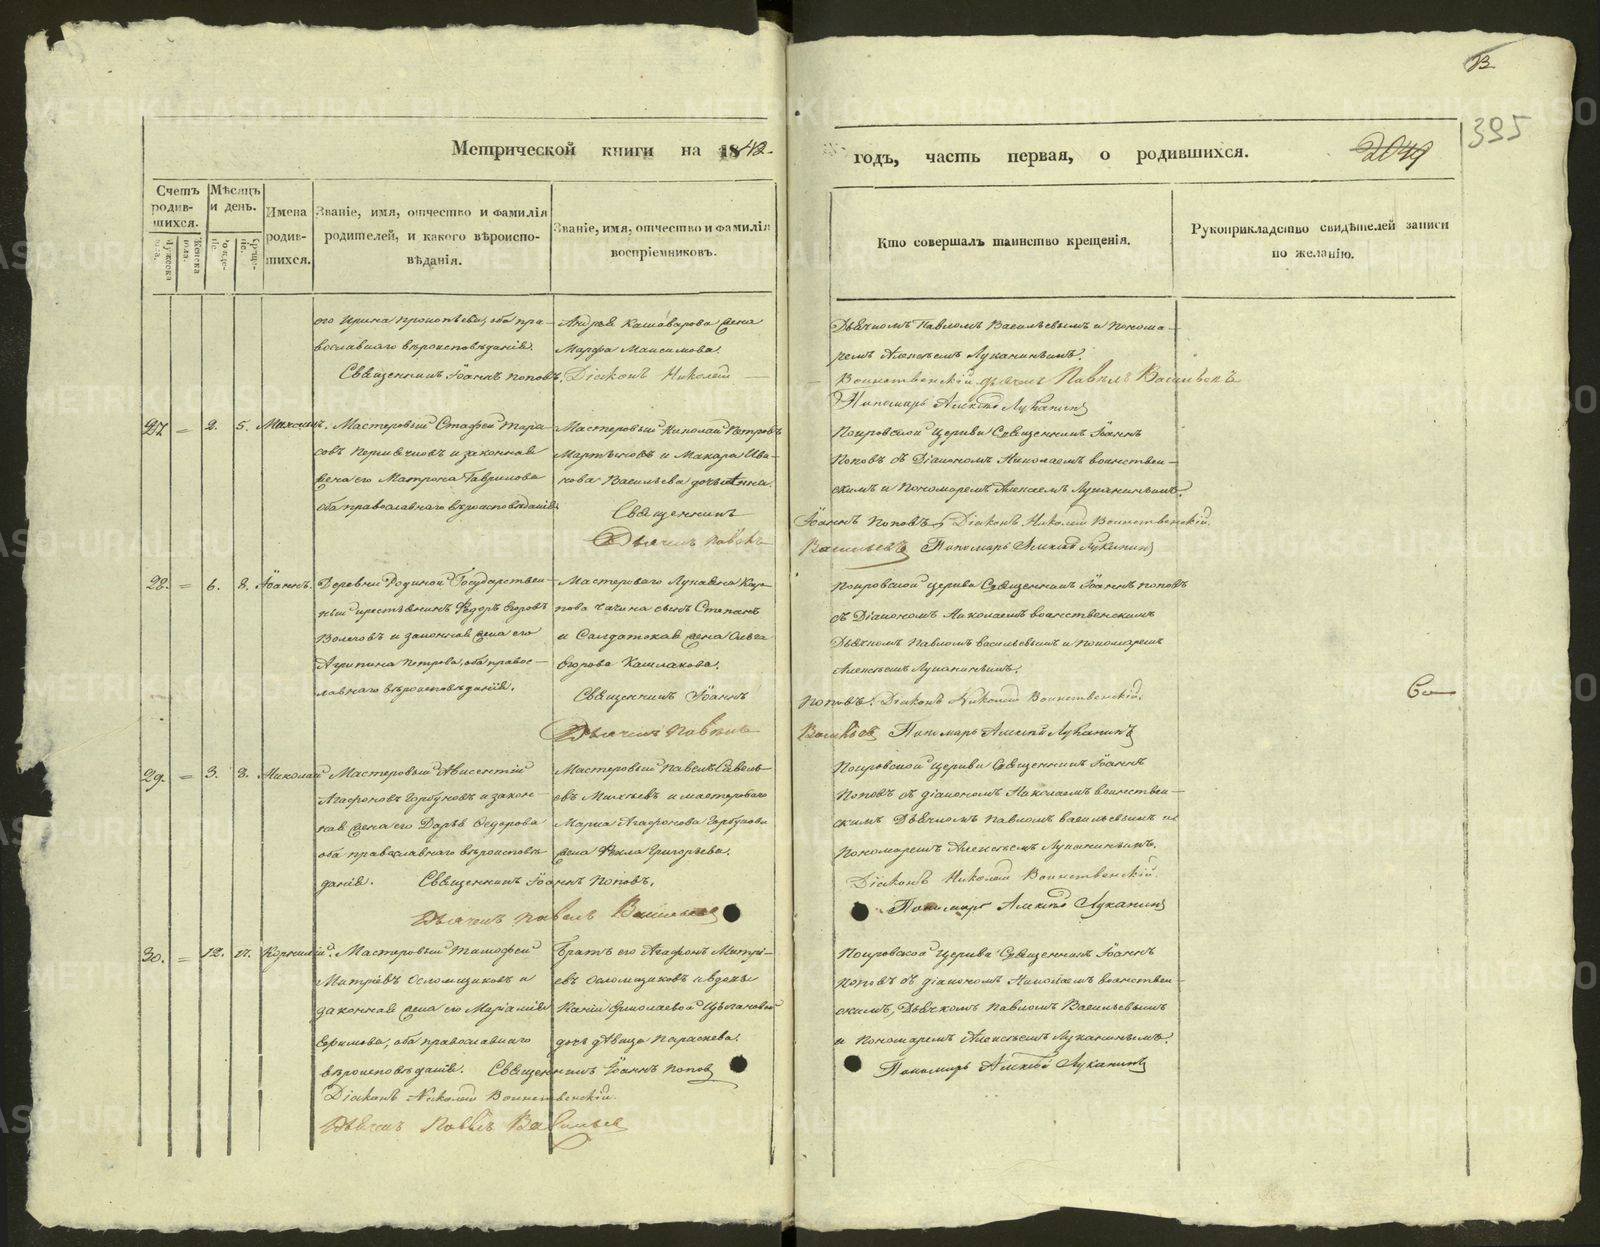 Метрической книги на 1842.
Счетъ родив-шихся.
Мѣсяцъ и день.
Имена родив-шихся.
Званіе, имя, отчество и фамилія родителей, и какого вѣроиспо-вѣданія.
Званіе, имя, отчество и фамилія воспріемниковъ.
его Ирина Прокопьева, оба пра-
вославнаго вѣроисповѣданія.
Священникъ Іоаннъ Поповъ.
Андрея Кашаварова жена
Марфа Максимова.
Діаконъ Николай
27. = 2. 5.
Мастеровый Стафей Тара-
совъ и законная
жена его Матрона Гаврилова
оба православнаго вѣроисповѣданія.
Мастеровый Николай Петровъ
Мартьновъ и Макара Ива-
нова Васильева дочь Анна.
Священникъ
Дьячекъ Павелъ
28. = 6. 8. Іоаннъ.
Деревни Родиной Государствен-
ный крестьянинъ Ѳедоръ Егоровъ
Волеговъ и законная жена его
Агрипина Петрова, оба право-
славнаго вѣроисповѣданія.
Мастероваго Лукаяна Кар-
пова сынъ Степанъ
и Солдатская жена Ольга
Егорова Кашлакова.
Священникъ Іоаннъ
Дьячекъ Павелъ
29. = 3. 8. Николай
Мастеровый Ависентій
Агафоновъ Горбуновъ и закон-
ная жена его Дарья Ѳедорова
оба православнаго вѣроисповѣ
данія. Священникъ Іоаннъ Поповъ.
Дьячекъ Павелъ Васильевъ
Мастеровый Павелъ Савель-
евъ Михѣевъ и мастероваго
Марка Агафонова Горбунова
жена Ѳекла Григорьева.
30. = 12. 17. Корнилій.
Мастеровый Тимофей
Митріевъ Осломщиковъ и
законная жена его Маріамія
Ефимова, оба православнаго
вѣроисповѣданія. Священникъ Іоаннъ Поповъ
Діаконъ Николай Воинственскій.
Дьячекъ Павелъ Васильевъ
Братъ его Агафонъ Митрі-
евъ Осломщиковъ и вдовы
Ермолаевой Цыгановой
дочь дѣвица Параскева.
13
395
2049
годъ, часть первая, о родившихся.
Кто совершалъ таинство крещенія.
Рукоприкладство свидѣтелей записи по желанію.
Дьячкомъ Павломъ Васильевымъ и Понома-
ремъ Алексѣемъ Луканинымъ.
Воинственскій Дьячекъ Павелъ Васильевъ
Пономарь Алексѣй Луканинъ
Покровской Церкви Священникъ Іоаннъ
Поповъ съ Діакономъ Николаемъ Воинствен-
скимъ и Пономаремъ Алексѣемъ Луканинымъ.
Іоаннъ Поповъ, Діаконъ Николай Воинственскій.
Васильевъ Пономарь Алексѣй Луканинъ
Покровской Церкви Священникъ Іоаннъ Поповъ
съ Діакономъ Николаемъ Воинственскимъ
Дьячкомъ Павломъ Васильевымъ и Пономаремъ
Алексѣемъ Луканинымъ.
Поповъ. Діаконъ Николай Воинственскій.
Васильевъ Пономарь Алексѣй Луканинъ
Покровской Церкви Священникъ Іоаннъ
Поповъ съ діакономъ Николаемъ Воинствен-
скимъ Дьячкомъ Павломъ Васильевымъ и
Пономаремъ Алексѣемъ Луканинымъ.
Діаконъ Николай Воинственскій.
Пономарь Алексѣй Луканинъ
Покровской Церкви Священникъ Іоаннъ
Поповъ съ діакономъ Николаемъ Воинствен-
скимъ, Дьячкомъ Павломъ Васильевымъ
и Пономаремъ Алексѣемъ Луканинымъ.
Пономарь Алексѣй Луканинъ
Со
METRIKI.GASO-URAL.RU